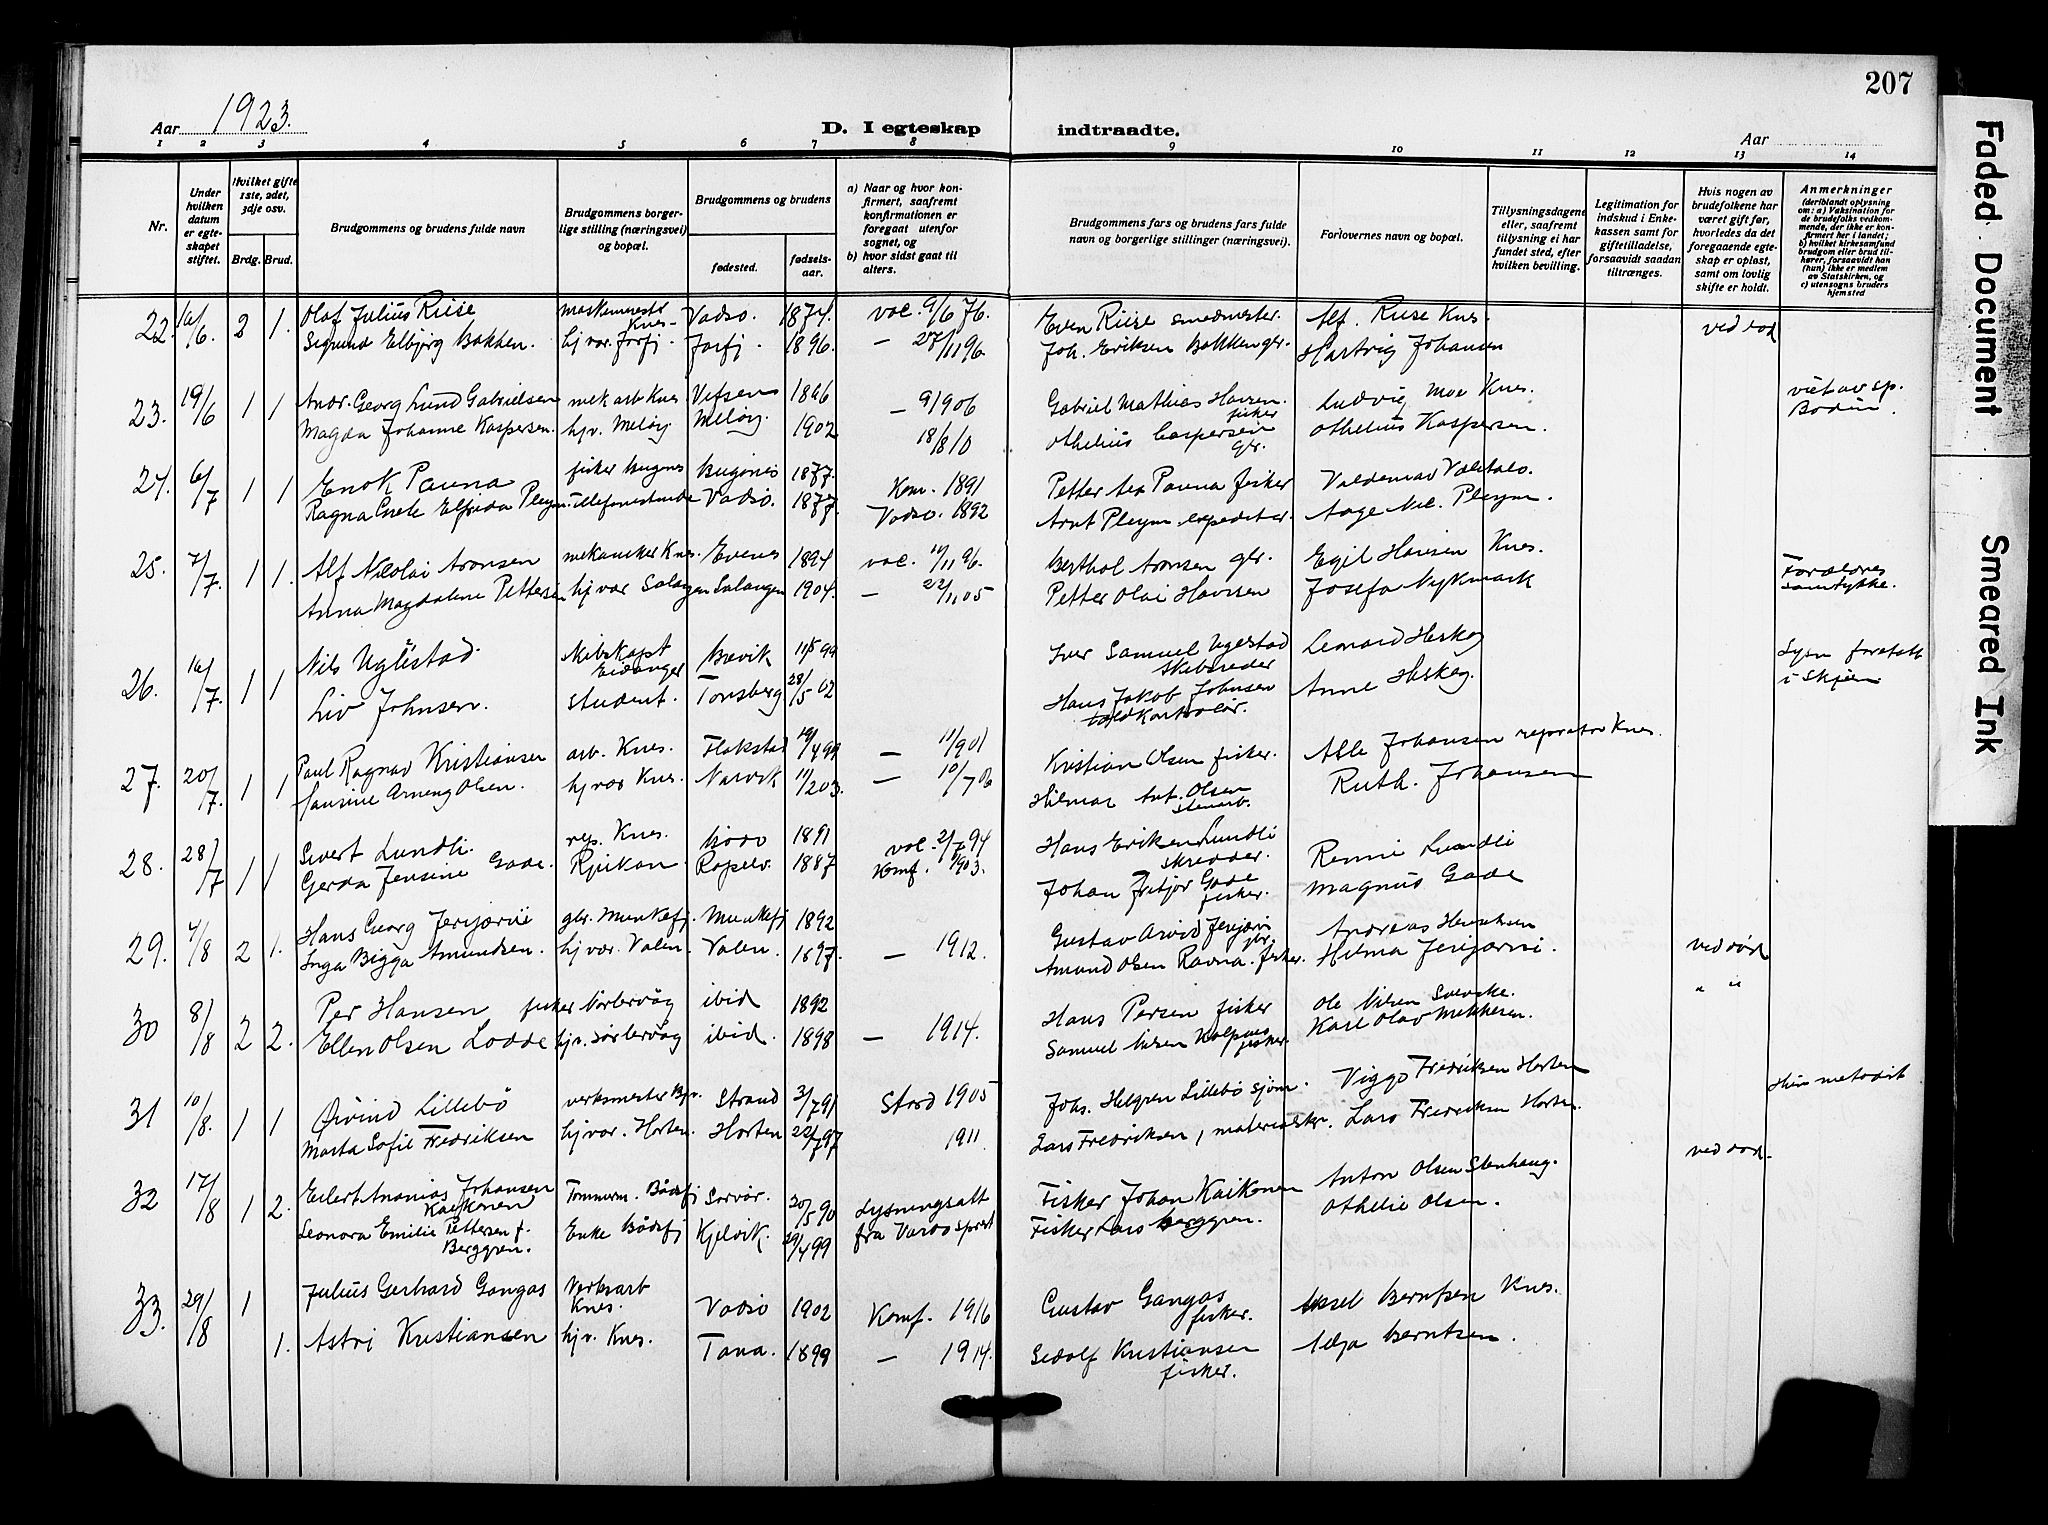 207
Aar 1923.
D. I egteskap indtraadte.
Aar
1 2 3 4 5 6 7 8 9 10 11 12 13 14
Nr.
Under hvilken datum er egteskapet stiftet.
Hvilket gifte 1ste, 2det, 3dje osv.
Brdg. Brud.
Brudgommens og brudens fulde navn
Brudgommens borgerlige stilling (næringsvei) og bopæl.
Brudgommens og brudens
fødested.
fødselsaar.
a) Naar og hvor konfirmert, saafremt konfirmutionen er foregaat utenfor sognet, og
b) hvor sidst gaat til alters.
Brudgommens fars og brudens fars fulde navn og borgerlige stillinger (næringsvei).
Forlovernes navn og bopæl.
Tillysningsdagene eller, saafremt tillysning ei har fundet sted, efter hvilken bevilling.
Legitimation for indskud i Enkekassen samt for giftetilladelse, forsaavidt saadan tiltrænges.
Hvis nogen av brudefolkene har været gift før, hvorledes da det foregaaende egteskap er opløst, samt om lovlig skifte er holdt.
Anmerkninger (deriblandt oplysning om: a) Vaksination for de brudefolks vedkommende, der ikke er konfirmert her i landet; b) hvilket kirkesamfund brudgom eller brud tilhører, forsaavidt han (hun) ikke er medlem av Statskirken, og c) utensogns bruders hjemsted
22. 16/6. 2 1. Olaf Julius Riise Knes. Vadsø. 1874. vac. 9/6 76. Even Riise smedmester. Alf. Riise Knes. ved død
Sigrund Elbjørg Bakken. hj vær. 1896. — 27/11 96. Joh. Eriksen Bakken gbr. Hartvig Johansen
23. 19/6 1 1 Andr. Georg Lund Gabrielsen mek arb Knes Vefsen 1886 — 9/906 Gabriel Mathias Hansen. fisker Ludvig Moe Knes. viet av sp. Bodin.
Magda Johanne Kaspersen. hjv. Meløy. Meløy. 1902 18/8 10 Othelius Caspersen gbr. Othelius Kaspersen.
24. 6/7 1 1 Enok Pauna fisker Bugønes 1877. Kom. 1891 Petter Pauna fisker Valdemar
Ragna Elfrida Pleym. Vadsø. 1877. Vadsø. 1892 Arnt Pleym. expeditør. Aage Nic. Pleym.
25. 7/7. 1 1. Alf Nicolai Aronsen mekaniker Knes. Evenes 1894 vac. 11/11 96. Berthol Aronsen gbr. Egil Hansen Knes. Forældres samtykke.
Anna Magdalene Pettersen hj vær Salangen Salangen 1904. — 22/11 05 Petter Olai Hansen Josefa Nykmark
26. 16/7. 1 1 Nils Uglestad. Skibskapt Eidanger Brevik 99 Iver Samuel Uglestad skibsreder Leonard Heskeg Lysn foretatt i Skjeen
Liv Johnsen. student. Tønsberg 28/5 02 Hans Jakob Johnsen toldkontrolør. Anne Heskeg.
27. 20/7. 1 1 Paul Ragnar Kristiansen arb. Knes. Flakstad 19/4 99 — 11/901 Kristian Olsen fisker. Able Johansen reparatør Knes.
Laurine Olsen. hj vær Knes. Narvik 11/2 03. — 10/7 06 Hilmar Ant. Olsen stenarb. Ruth. Johansen
28. 28/7 1 1 Sivert Lundli. rep. Knes. Bodø 1891 vac. 2/7 94 Hans Eriksen Lundli skredder. Lundli
Gerda Jensine Gade. Rjukan. 1887 Konf. 1903. Johan Fritjof Gade fisker. Magnus Gade
29. 4/8 2 1. Hans Georg Jerijærvi gbr. Munkefj. Munkefj 1892 Gustav Arvid Jerijærvi gbr. Andreas Henriksen ved død
Inga Bigga Amundsen. hj vær. Valen. Valen. 1897. — 1912. Amund Olsen Ravna. fisker. Hilma Jerijærvi.
30 8/8 2 2. Per Hansen fisker Sørlervåg ibid 1892 Hans Persen fisker Ole Nilsen Svenske. " "
Ellen Olsen Lodde hjv. Sørlervåg ibid. 1898 — 1914. Samuel Nilsen fisker. Karl Olav Mekkesen.
31 10/8. 1 1 Øivind Lillebø verksmester Bjv. Strand 3/7 91 Stord 1905 Johs. Helgren Lillebø sjøm. Viggo Fredriksen Horten Hun metodist
Marta Sofie Fredriksen hj vær. Horten. Horten 22/7 97 1911. Lars Fredriksen, materialskr. Lars Fredriksen Horten.
32 17/8 1 2. Eilert Ananias Johansen Kaikonen Tømmerm. Bådsfj Sørvær. 20/5 90 Lysningsatt Fisker Johan Kaikonen Anton Olsen Stenhaug. ved død.
Leonora Emilie Pettersen f. Berggren. Enke Bådsfj Kjelvik. 29/4 99 fra Vardø sprest Fisker Lars Berggren. Othelie Olsen.
33. 29/8 1 Julius Gerhard Gangas Verksarb Knes. Vadsø 1902 Konf. 1916 Gustav Gangas fisker. Aksel Berntsen Knes.
1. Astri Kristiansen hjv. Knes. Tana. 1899 — 1914. Sedolf Kristiansen fisker. Alga Berntsen.
Faded Document
Smeared Ink